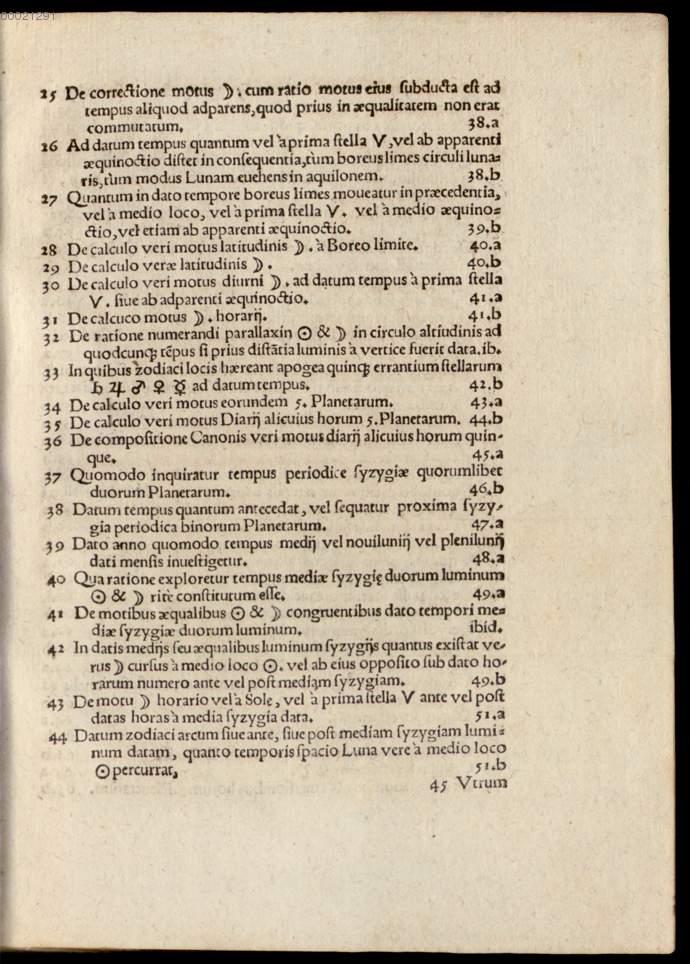 00021291
25 De correctione motus ☽. cum ratio motus eius subducta est ad
tempus aliquod adparens, quod prius in æqualitatem non erat
commutatum. 38.a
26 Ad datum tempus quantum vel à prima stella ♈, vel ab apparenti
æquinoctio distet in consequentia, tùm boreus limes circuli luna=
ris, tùm modus Lunam euehens in aquilonem. 38.b
27 Quantum in dato tempore boreus limes moueatur in præcedentia,
vel à medio loco, vel à prima stella ♈. vel à medio æquino=
ctio, vel etiam ab apparenti æquinoctio. 39.b
28 De calculo veri motus latitudinis ☽. à Boreo limite. 40.a
29 De calculo veræ latitudinis ☽. 40.b
30 De calculo veri motus diurni ☽. ad datum tempus à prima stella
♈. siue ab adparenti æquinoctio. 41.a
31 De calcuco motus ☽. horarij. 41.b
32 De ratione numerandi parallaxin ☉ & ☽ in circulo altiudinis ad
quodcunqꝫ tẽpus si prius distãtia luminis à vertice fuerit data. ib.
33 In quibus zodiaci locis hæreant apogea quinqꝫ errantium stellarum
♄ ♃ ♂ ♀ ☿ ad datum tempus. 42.b
34 De calculo veri motus eorundem 5. Planetarum. 43.a
35 De calculo veri motus Diarij alicuius horum 5. Planetarum. 44.b
36 De compositione Canonis veri motus diarij alicuius horum quin-
que. 45.a
37 Quomodo inquiratur tempus periodice syzygiæ quorumlibet
duorum Planetarum. 46.b
38 Datum tempus quantum antecedat, vel sequatur proxima syzy-
gia periodica binorum Planetarum. 47.a
39 Dato anno quomodo tempus medij vel nouilunij vel plenilunij
dati mensis inuestigetur. 48.a
40 Qua ratione exploretur tempus mediæ syzygię duorum luminum
☉ & ☽ ritè constitutum esse. 49.a
41 De motibus æqualibus ☉ & ☽ congruentibus dato tempori me=
diæ syzygiæ duorum luminum. ibid.
42 In datis medijs seu æqualibus luminum syzygijs quantus existat ve-
rus ☽ cursus à medio loco ☉. vel ab eius opposito sub dato ho-
rarum numero ante vel post mediam syzygiam. 49.b
43 De motu ☽ horario vel à Sole, vel à prima stella ♈ ante vel post
datas horas à media syzygia data. 51.a
44 Datum zodiaci arcum siue ante, siue post mediam syzygiam lumi=
num datam, quanto temporis spacio Luna vere à medio loco
☉ percurrat, 51.b
45 Vtrum